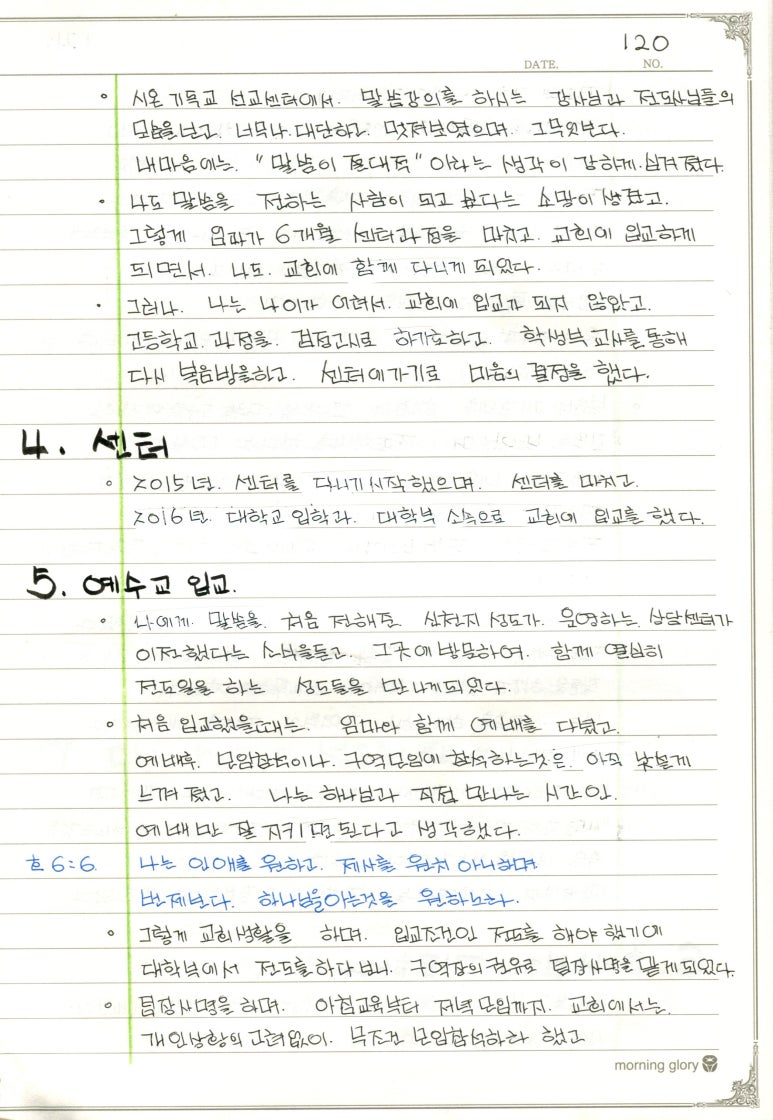 120
DATE. NO.
시온 기독교 선교센터에서. 말씀강의를 하시는 강사님과 전도사님들의
모습을보고. 너무나.대단하고. 멋져보였으며. 그무엇보다.
내마음에는. "말씀이 절대적" 이라는 생각이 강하게.심겨졌다.
나도 말씀을 전하는 사람이 되고 싶다는 소망이생겼고.
그렇게 엄마가 6개월 센터과정을 마치고. 교회에 입교하게
되면서. 나도. 교회에 함께 다니게 되었다.
그러나. 나는 나이가 어려서. 교회에 입교가 되지 않았고.
고등학교.과정을. 검정고시로 하기로하고. 학생부 교사를통해
다시 복음방을하고. 센터에가기로 마음의 결정을 했다.
4. 센터
2015년. 센터를 다니기시작했으며. 센터를 마치고.
2016년. 대학교입학과. 대학부 소속으로 교회에 입교를 했다.
5. 예수교 입교.
나에게. 말씀을. 처음 전해준 신천지 성도가. 운영하는. 상담센터가
이전했다는 소식을듣고. 그곳에방문하여. 함께 열심히
전도일을 하는 성도들을 만나게되었다.
처음 입교했을때는. 엄마와 함께 예배를 다녔고.
예배후. 모임참석이나. 구역모임에 참석하는것은. 아직 낯설게
느껴졌고. 나는 하나님과 직접 만나는 시간인.
예배만 잘 지키면된다고 생각했다.
호 6:6. 나는 인애를 원하고. 제사를 원치 아니하며
번제보다. 하나님을아는것을 원하노라.
그렇게 교회생활을 하며. 입교조건인 전도를 해야 했기에
대학부에서 전도를하다보니. 구역장의권유로 팀장사명을맡게되었다.
팀장사명을 하며. 아침교육부터 저녁모임까지. 교회에서는.
개인상황의고려없이. 무조건 모임참석하라 했고
morning glory